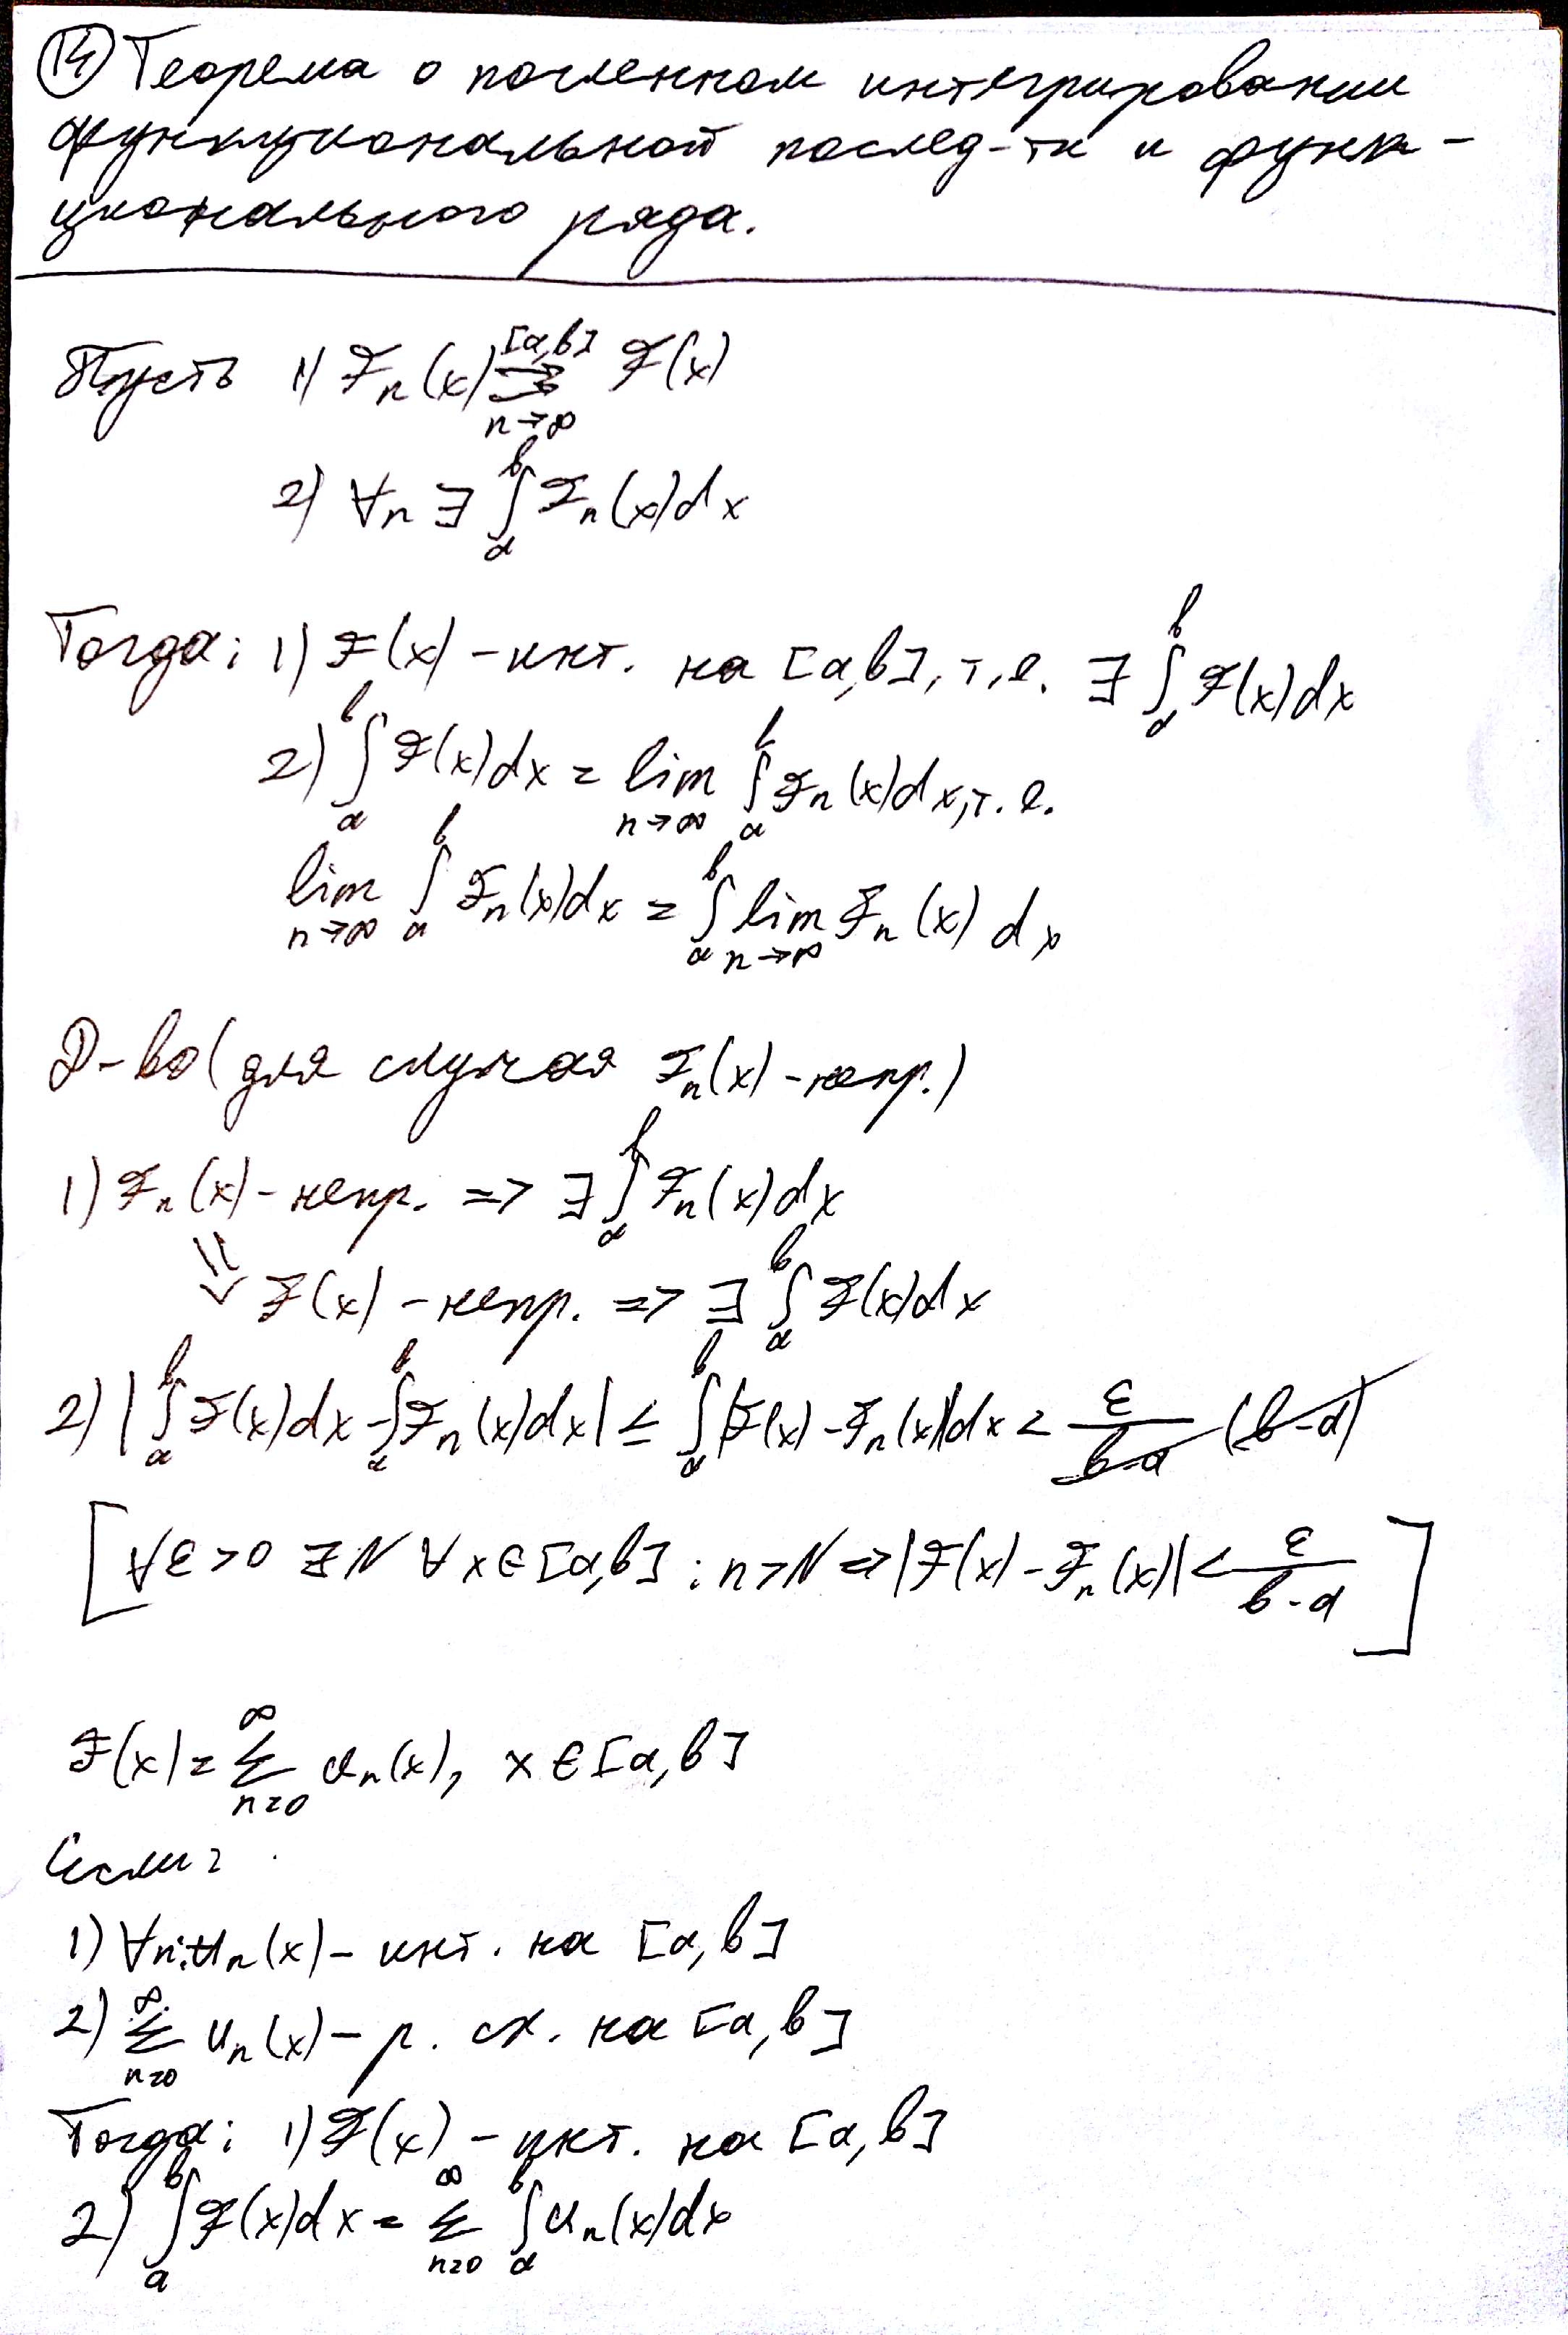 14 Теорема о почленном интегрировании
функциональной послед-ти и функ-
ционального ряда.
Пусть 1) F_n(x) ⇉ F(x) [a,b] n→∞
2) ∀n ∃ ∫_a^b F_n(x)dx
Тогда: 1) F(x) - инт. на [a,b], т.е. ∃ ∫_a^b F(x)dx
2) ∫_a^b F(x)dx = lim_{n→∞} ∫_a^b F_n(x)dx, т.е.
lim_{n→∞} ∫_a^b F_n(x)dx = ∫_a^b lim_{n→∞} F_n(x) dx
Д-во (для случая F_n(x) - непр.)
1) F_n(x) - непр. => ∃ ∫_a^b F_n(x)dx
⇓ F(x) - непр. => ∃ ∫_a^b F(x)dx
2) |∫_a^b F(x)dx - ∫_a^b F_n(x)dx| ≤ ∫_a^b |F(x) - F_n(x)|dx < ε/(b-a) (b-a)
[∀ε>0 ∃N ∀x∈[a,b] : n>N => |F(x) - F_n(x)| < ε/(b-a)]
F(x) = ∑_{n=0}^∞ u_n(x), x∈[a,b]
Если:
1) ∀n: u_n(x) - инт. на [a,b]
2) ∑_{n=0}^∞ u_n(x) - р. сх. на [a,b]
Тогда: 1) F(x) - инт. на [a,b]
2) ∫_a^b F(x)dx = ∑_{n=0}^∞ ∫_a^b u_n(x)dx